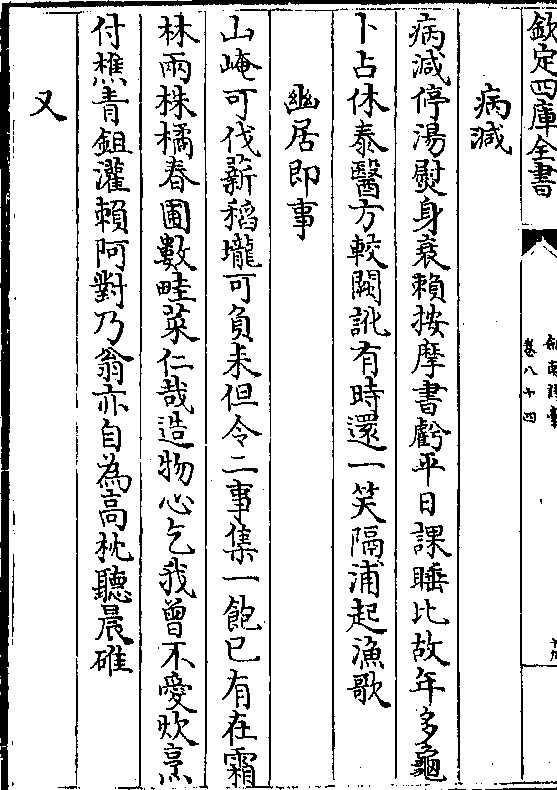 欽定四庫全書
卷八十四
病減
病減停湯熨身衰賴按摩書虧平日課睡比故年多龜
卜占休泰醫方較闕訛有時還一笑隔浦起漁歌
幽居即事
山崦可伐薪稻壠可負耒但令二事集一飽已有在霜
林兩株橘春圃數畦菜仁哉造物心乞我曾不愛炊烹
付樵青鉏灌賴阿對乃翁亦自為高枕聽晨碓
又